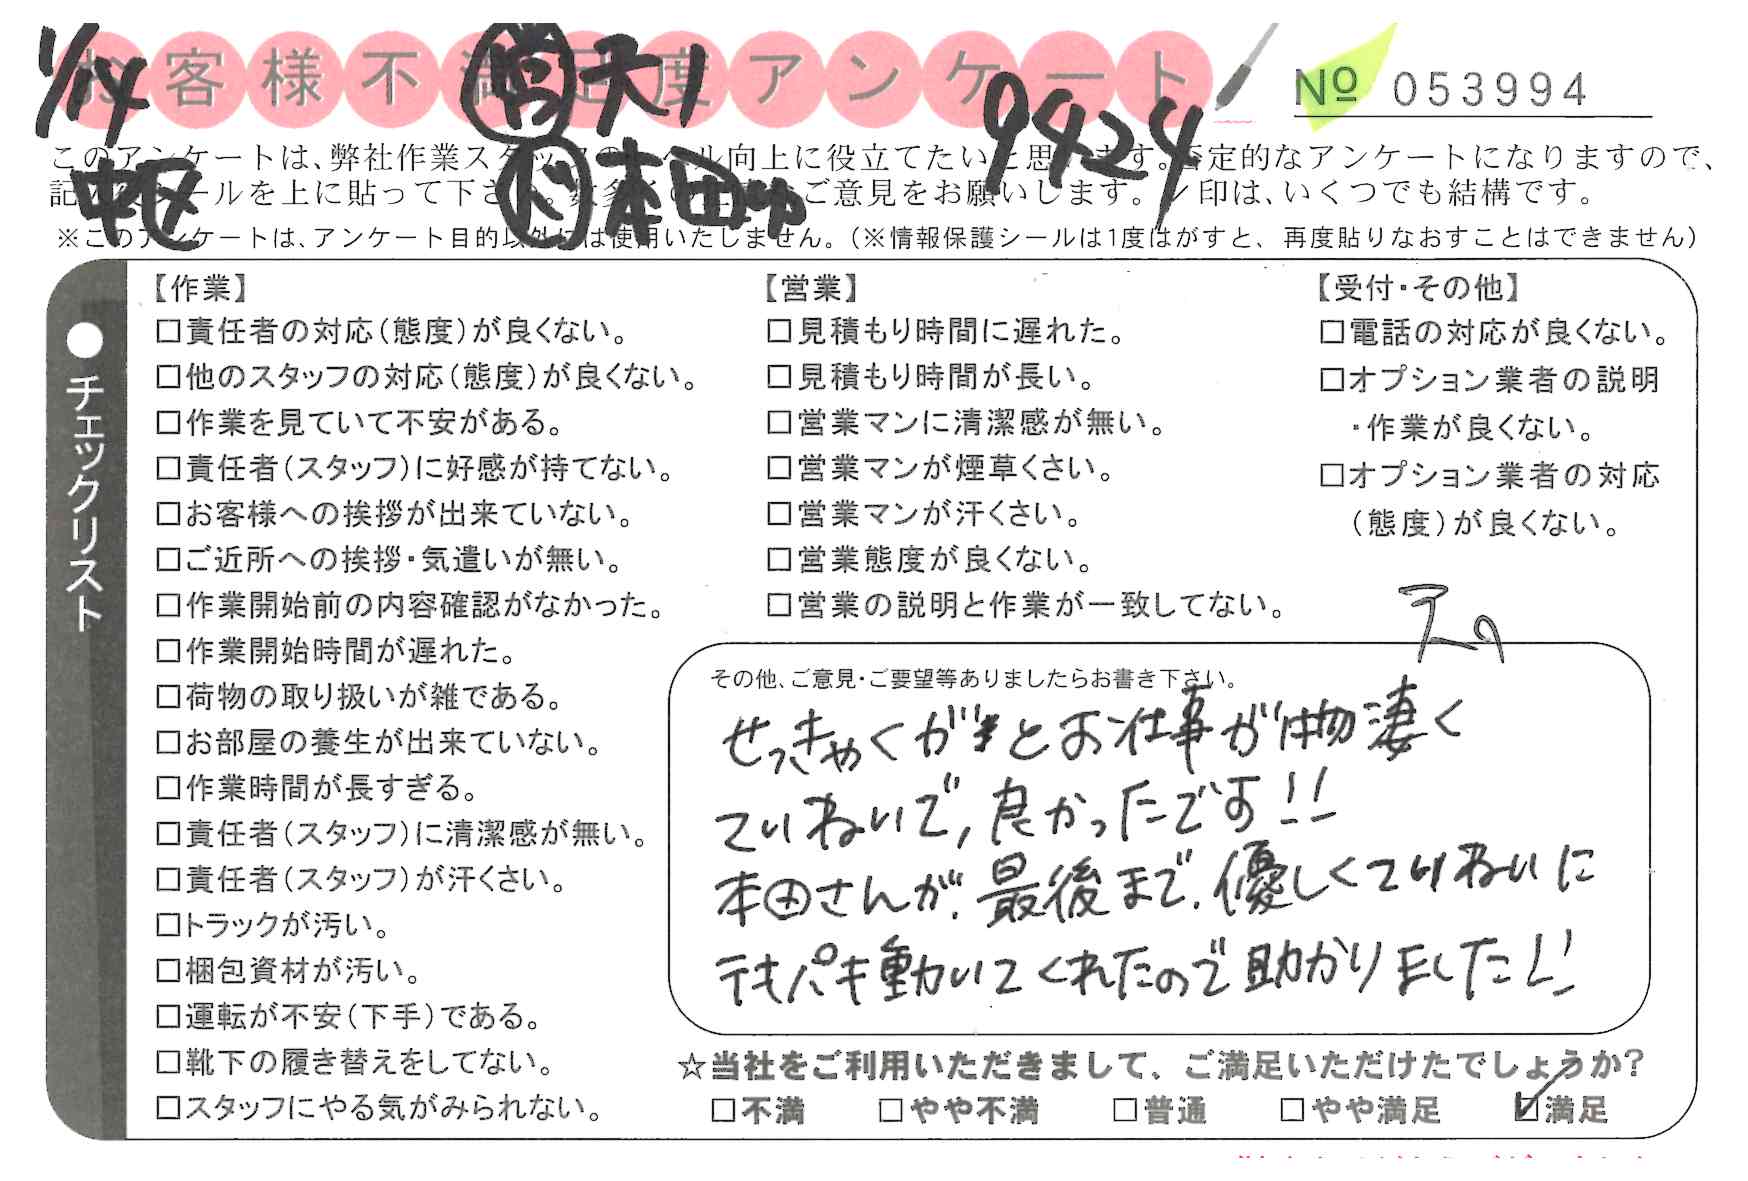 1/14
お客様不満足度アンケート
No 053994
9424
このアンケートは、弊社作業スタッフのレベル向上に役立てたいと思います。否定的なアンケートになりますので、
記入後シールを上に貼って下さい。数多くの正直なご意見をお願いします。✓印は、いくつでも結構です。
本田
※このアンケートは、アンケート目的以外には使用いたしません。（※情報保護シールは1度はがすと、再度貼りなおすことはできません）
●チェックリスト
【作業】
□責任者の対応（態度）が良くない。
□他のスタッフの対応（態度）が良くない。
□作業を見ていて不安がある。
□責任者（スタッフ）に好感が持てない。
□お客様への挨拶が出来ていない。
□ご近所への挨拶・気遣いが無い。
□作業開始前の内容確認がなかった。
□作業開始時間が遅れた。
□荷物の取り扱いが雑である。
□お部屋の養生が出来ていない。
□作業時間が長すぎる。
□責任者（スタッフ）に清潔感が無い。
□責任者（スタッフ）が汗くさい。
□トラックが汚い。
□梱包資材が汚い。
□運転が不安（下手）である。
□靴下の履き替えをしてない。
□スタッフにやる気がみられない。
【営業】
□見積もり時間に遅れた。
□見積もり時間が長い。
□営業マンに清潔感が無い。
□営業マンが煙草くさい。
□営業マンが汗くさい。
□営業態度が良くない。
□営業の説明と作業が一致してない。
【受付・その他】
□電話の対応が良くない。
□オプション業者の説明
・作業が良くない。
□オプション業者の対応
（態度）が良くない。
その他、ご意見・ご要望等ありましたらお書き下さい。
せっきゃくがとお仕事が物凄く
ていねいで、良かったです!!
本田さんが、最後まで、優しくていねいに
テキパキ動いてくれたので助かりました!!
☆当社をご利用いただきまして、ご満足いただけたでしょうか?
□不満 □やや不満 □普通 □やや満足 ☑満足